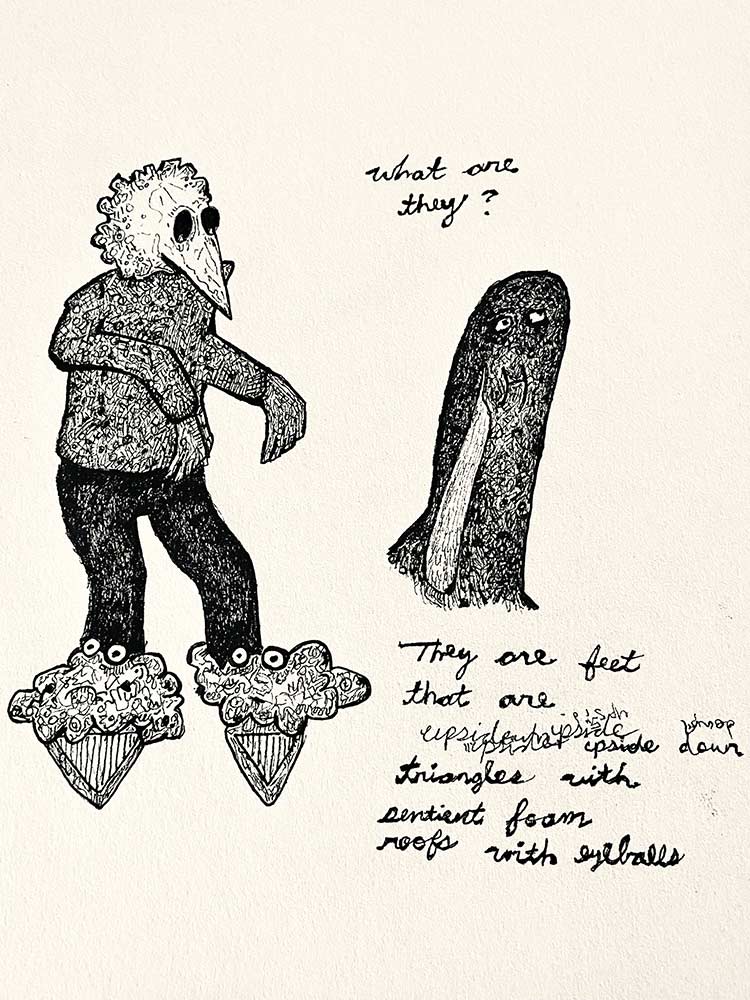 what are
they?
They are feet
that are
upside down
triangles with
sentient foam
roofs with eyeballs